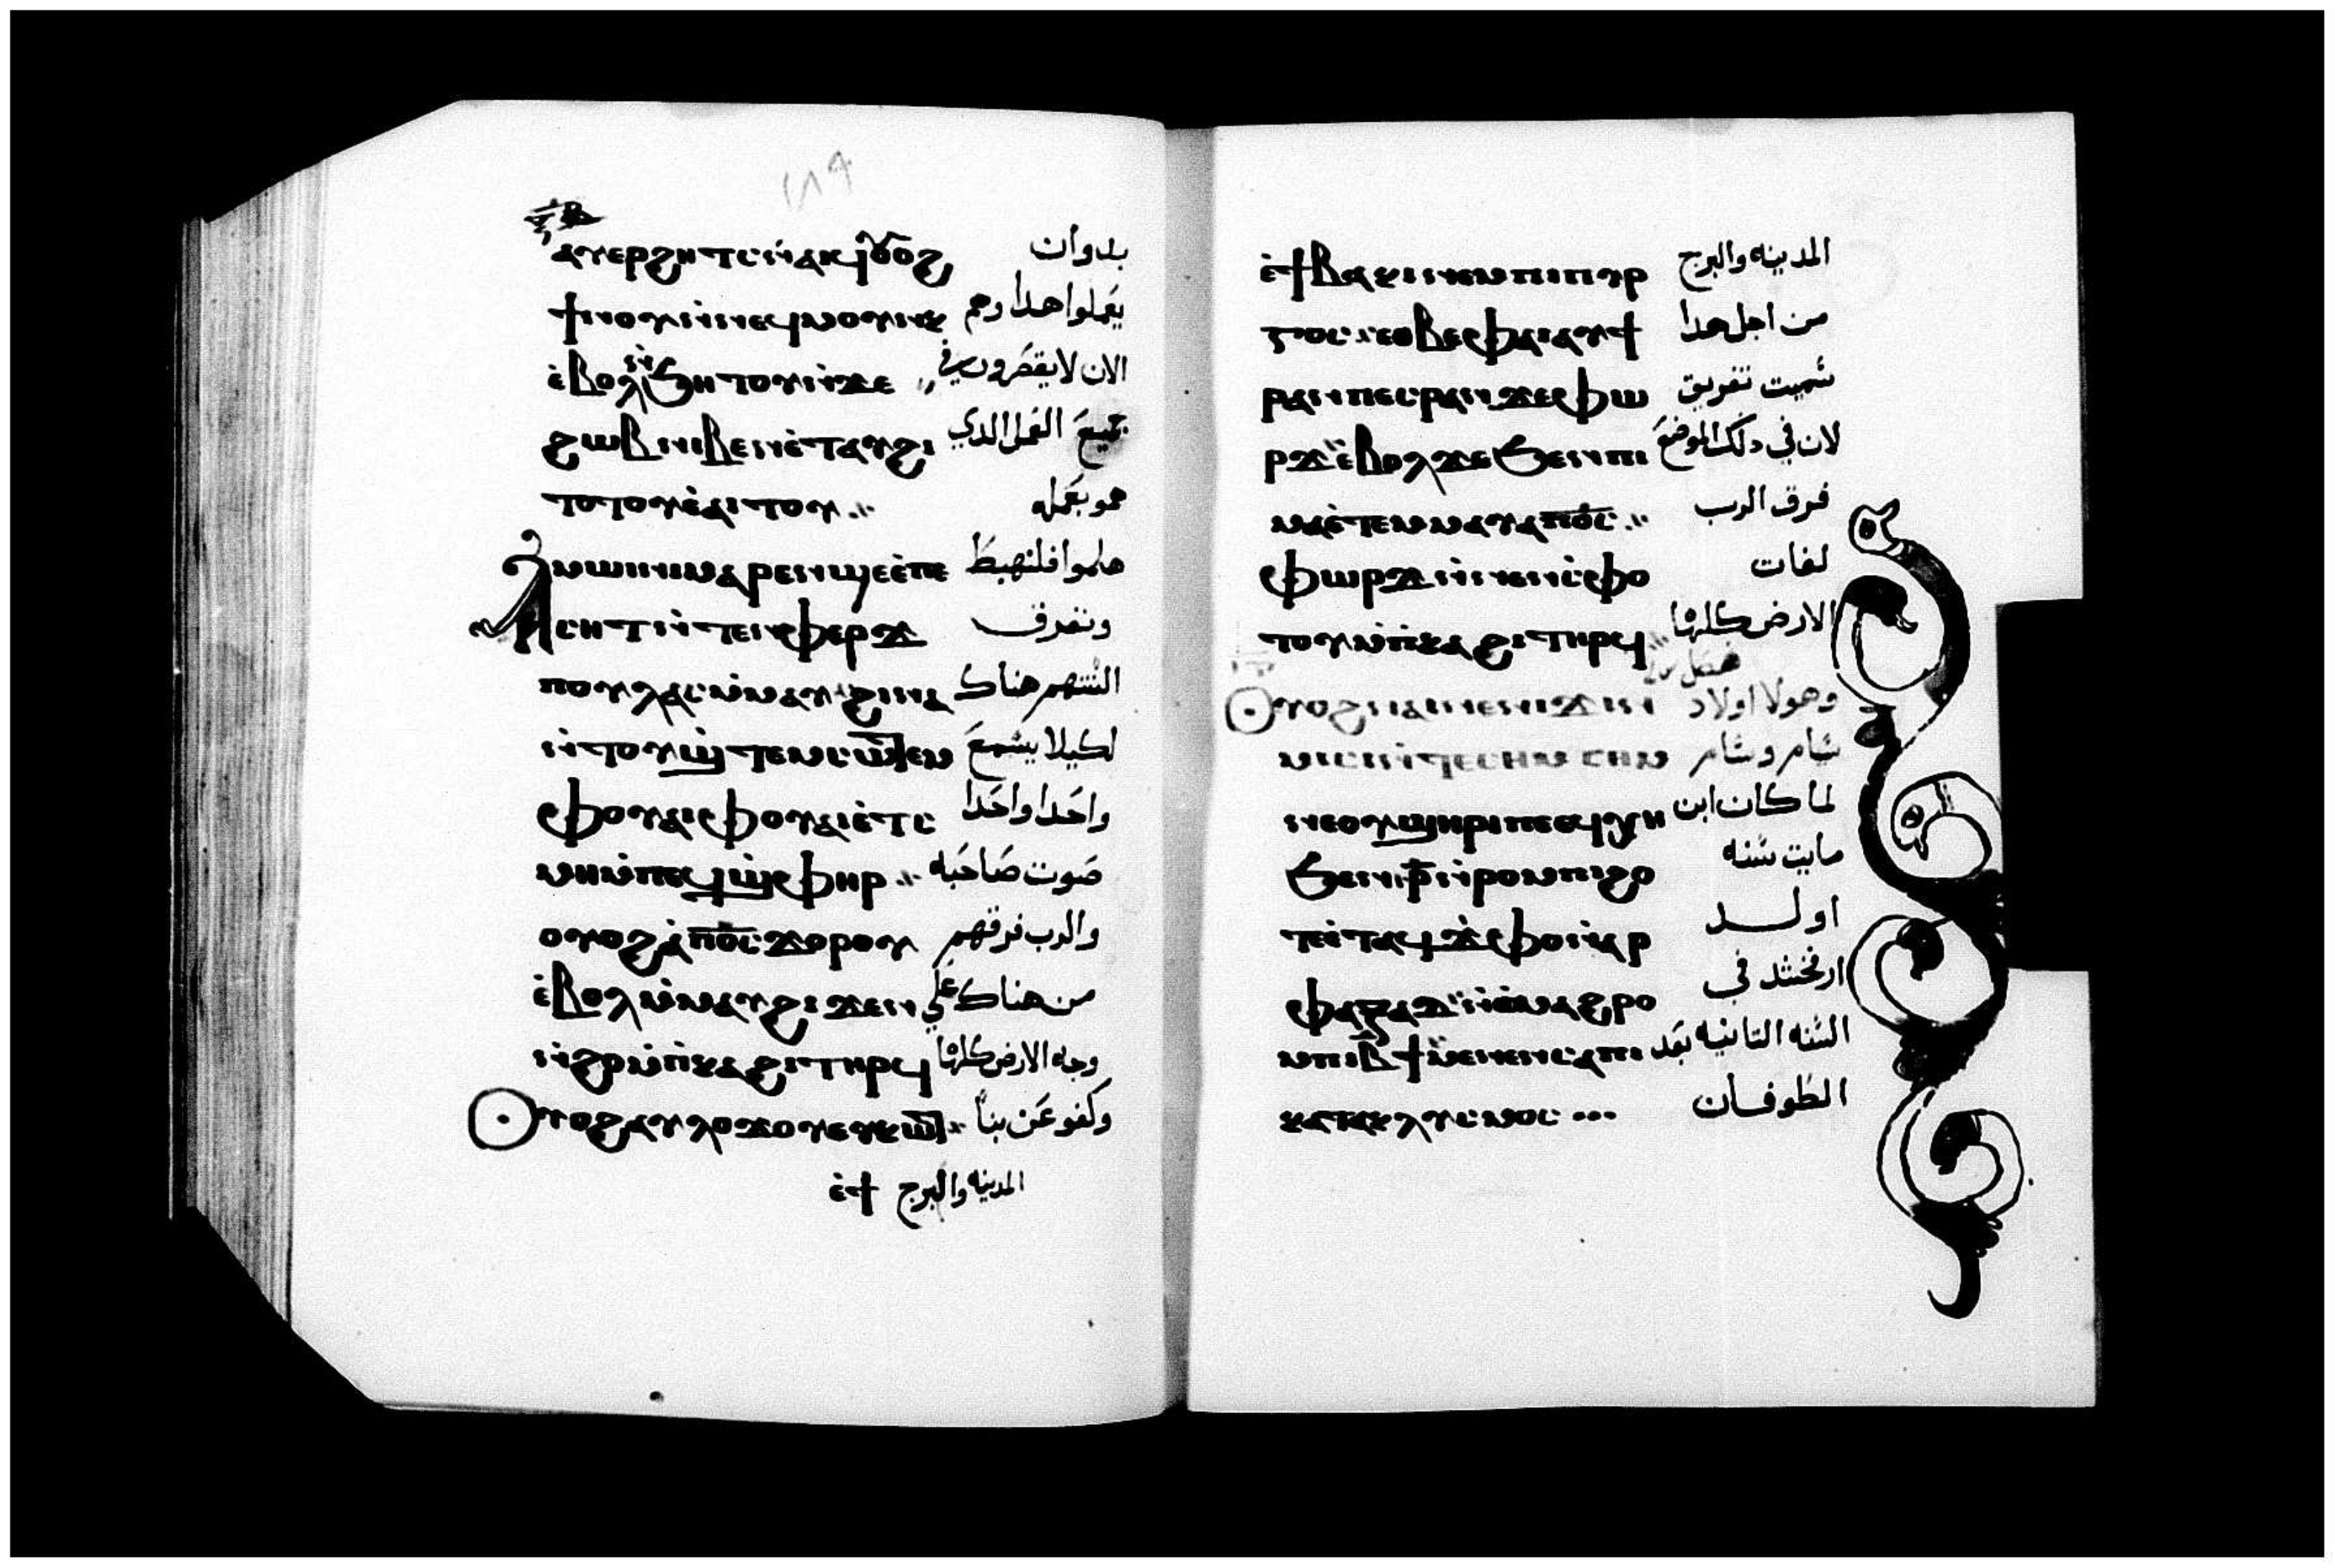 ٢٨٩
ⲁⲩⲉⲣϩⲏⲧⲥ ⲛ̀ⲁⲓϥ ⲟⲩⲟϩ بدوان
ϯⲛⲟⲩ ⲛ̀ⲛⲉϥⲙⲟⲩⲛⲕ يعملوا هدا وهم
ⲉ̀ⲃⲟⲗ ⲛ̀ϧⲏⲧⲟⲩ ⲛ̀ϫⲉ الان لا يقصرون في
ϩⲱⲃ ⲛⲓⲃⲉⲛ ⲉ̀ⲧⲁⲩϩⲓ جميع الفعل الدي
ⲧⲟⲧⲟⲩ ⲉ̀ⲁⲓⲧⲟⲩ همو بعمله
ⲁⲙⲱⲓⲛⲓ ⲙⲁⲣⲉⲛϣⲉ ⲉ̀ⲡⲉ هلموا فلنهبط
ⲥⲏⲧ ⲛ̀ⲧⲉⲛⲫⲉⲣϫ ونفرق
ⲡⲟⲩⲗⲁⲥ ⲙ̀ⲙⲁⲩ ϩⲓⲛⲁ السنتهم هناك
ⲛ̀ⲧⲟⲩϣ̀ⲧⲉⲙⲥⲱⲧⲉⲙ لكيلا يسمع
ⲫⲟⲩⲁⲓ ⲫⲟⲩⲁⲓ ⲉ̀ⲧⲥ واحدا واحدا
ⲙⲏ ⲙ̀ⲡⲉϥϣ̀ⲫⲏⲣ صوت صاحبه
ⲟⲩⲟϩ ⲁ̀ⲡϭⲥ ϫⲟⲣⲟⲩ والرب فرقهم
ⲉ̀ⲃⲟⲗ ⲙ̀ⲙⲁⲩ ϩⲓϫⲉⲛ من هناك على
ⲛ̀ϩⲣ ⲙ̀ⲡ̀ⲕⲁϩⲓ ⲧⲏⲣϥ وجه الارض كلها
ⲟⲩⲟϩ ⲁⲩⲗⲟϫⲟⲩ ⲉⲩⲕⲱⲧ وكفو عن بنا
ⲉ̀ϯ المدينه والبرج
ⲉ̀ϯⲃⲁⲕⲓ ⲛⲉⲙ ⲡⲓⲡⲩⲣ المدينه والبرج
ⲅⲟⲥ ⲉⲑⲃⲉ ⲫⲁⲓ ⲁⲩϯ من اجل هدا
ⲣⲁⲛ ⲡⲉⲥⲣⲁⲛ ϫⲉ ⲫⲱ سميت تفريق
ⲣϫ ⲉ̀ⲃⲟⲗ ϫⲉ ϧⲉⲛ ⲡⲓ لان في دلك الموضع
ⲙⲁ ⲉ̀ⲧⲉⲙⲙⲁⲩ ⲁ ⲡϭⲥ فرق الرب
ⲫⲱⲣϫ ⲛ̀ⲛⲉⲛⲥ̀ⲫⲟ لغات
ⲧⲟⲩ ⲙ̀ⲡ̀ⲕⲁϩⲓ ⲧⲏⲣϥ الارض كلها
ⲟⲩⲟϩ ⲛⲁⲓ ⲛⲉ ⲛⲓϫⲓⲛ وهولا اولاد
ⲙⲓⲥⲓ ⲛ̀ⲧⲉ ⲥⲏⲙ ⲥⲏⲙ سام وسام
ⲛⲉ ⲟⲩϣⲏⲣⲓ ⲡⲉ ⲉϥⲭⲏ لما كان ابن
ϧⲉⲛ ⲣ̄ ⲛ̀ⲣⲟⲙⲡⲓ ϩⲟ مايت سنه
ⲧⲉ ⲉ̀ⲧⲁϥϫ̀ⲫⲟ ⲛ̀ⲁⲣ اولد
ⲫⲁⲝⲁⲇ ⲛ̀ⲑⲙⲁϩⲣⲟ ارفخشد في
ⲙⲡⲓ ⲃ̄ϯ ⲙⲉⲛⲉⲛⲥⲁ ⲡⲓ السنه التانيه بعد
ⲕⲁⲧⲁⲕⲗⲩⲥⲙⲟⲥ الطوفان